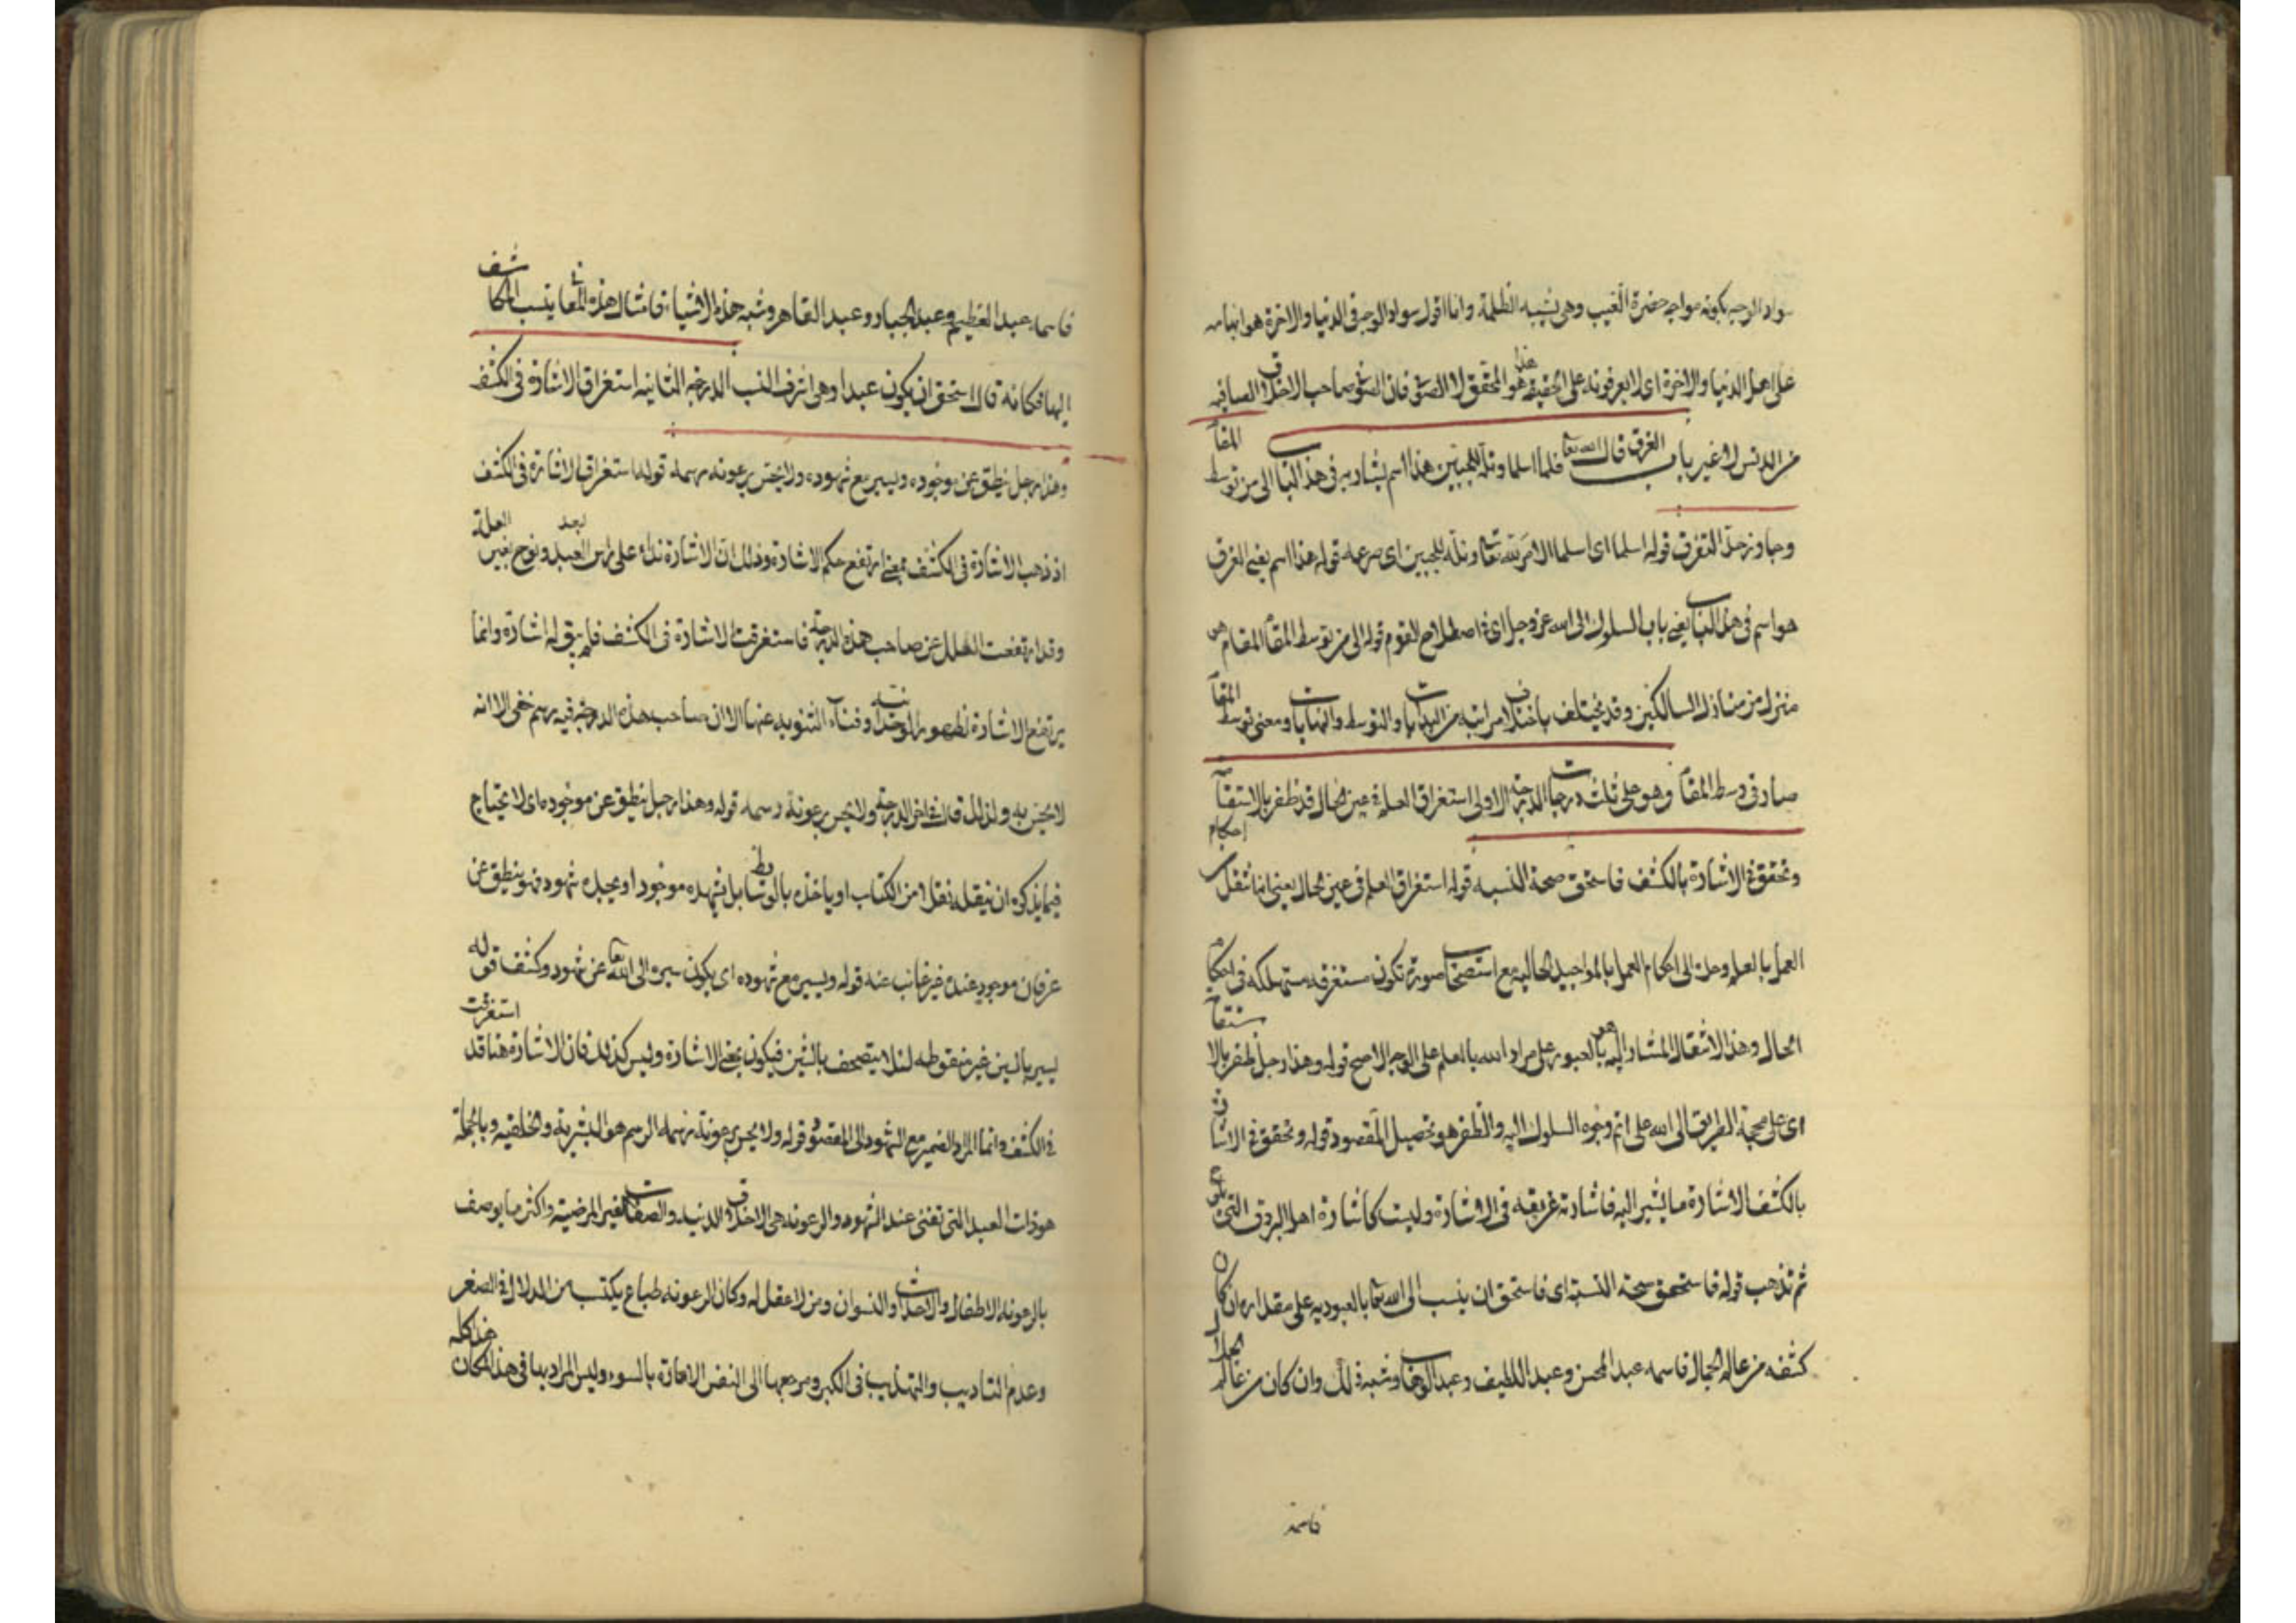 سواد الوجه بكونه مواجه حضرة الغيب وهى تشبه الظلمة وانا اقول سواد الوجه فى الدنيا والاخرة هو ابهامه
على اهل الدنيا والاخرة اى لا يعرفونه على الحقيقه هذا هو المحقق لا الصوفى فان الصوفى صاحب الاخلاق الصافيه
من الدنس لا غير باب الغرق قال الله تعا فلما اسلما وتله للجبين هذا اسم يشار به فى هذا الباب الى من توسط المقام
وجاوز حد التفرق قوله اسلما اى اسلما الامر لله تعا وتله للجبين اى صرعه قوله هذا اسم يعنى الغرق
هو اسم فى هذا الباب يعنى باب السلوك الى الله عز وجل اى فى اصطلاح القوم قوله الى من توسط المقام المقام هو
منزل من منازل السالكين وقد يختلف باختلاف مراتبه من البدايات والتوسط والنهايات ومعنى توسط المقام
صار فى وسط المقام وهو على ثلث درجات الدرجة الاولى استغراق العلم فى عين الحال وهذا رجل قد ظفر بالاستقامة
وتحقق فى الاشارة بالكشف فاستحق صحة النسبه قوله استغراق العلم فى عين الحال يعنى انما تنقل احكام
العمل بالعلم وحده الى احكام العمل بالمواجيد الحاليه مع استصحاب صورة تكون مستغرقه مستهلكه فى احكام
الحال وهذا الانتقال المشار اليه هو بالعبور على مراد الله بالعلم على الوجه الاصح قوله وهذا رجل ظفر بالاستقامة
اى على محجة الطريق الى الله على اتم وجوه السلوك اليه والظفر هو تحصيل المقصود قوله وتحقق فى الاشارة
بالكشف الاشارة ما يشير اليه فاشارته غريقه فى الاشارة وليست كاشارة اهل البروق التى تلمع
ثم تذهب قوله فاستحق صحة النسبة اى فاستحق ان ينسب الى الله تعا بالعبوديه على مقداره ان كان
كشفه من عالم الجمال فاسمه عبد المحسن وعبد اللطيف وعبد الوهاب وشبه ذلك وان كان من عالم الجلال
فاسمه
فاسمه عبد العظيم وعبد الجبار وعبد القاهر وشبه هذه الاشياء فامثال هذه المعانى ينسب المكاشف
اليها فكانه قال استحق ان يكون عبدا وهى اشرف النسب الدرجة الثانيه استغراق الاشارة فى الكشف
وهذا رجل ينطق عن موجوده ويسير مع شهوده ولا يحس برعونه رسمه قوله استغراق الاشارة فى الكشف
اذ ذهب الاشارة فى الكشف بمعنى ارتفع حكم الاشارة وذلك ان الاشارة نداء على راس البعد وبوح بعين العلة
وقد ارتفعت العلل عن صاحب هذه الدرجة فاستغرقت الاشارة فى الكشف فلم يبق له اشارة وانما
يرتفع الاشارة لظهور الوحدانيه وفناء الثنويه عنها الا ان صاحب هذه الدرجة فيه رسم خفى الا انه
لا يحس به ولذلك قال فى اخر الدرجة ولا يحس برعونة رسمه قوله وهذا رجل ينطق عن موجوده اى لا يحتاج
فيما يذكره ان ينقله نقلا من الكتاب او ياخذه بالوسائط بل يشهده موجودا ويجده شهود فهو ينطق عن
عرفان موجود عنده غير غائب عنه قوله ويسير مع شهوده اى يكون سيره الى الله تعا عن شهود وكشف قوله
يسير بالسين غير منقوطه لئلا يتصحف بالشين فيكون بمعنى الاشارة وليس كذلك فان الاشارة هنا قد استغرقت
فى الكشف وانما المراد المسير مع الشهود الى المقصود قوله ولا يحس برعونة رسمه الرسم هو البشرية والخلقيه وبالجملة
هو ذات العبد التى تفنى عند الشهود والرعونه هى الاخلاق الدنيه والصفات الغير المرضيه واكثر ما يوصف
بالرعونه الاطفال والاحداث والنسوان ومن لا عقل له وكان الرعونه طباع يكتسب من الدلال فى الصغر
وعدم التاديب والتهذيب فى الكبر ومرجعها الى النفس الامارة بالسوء وليس المراد بها فى هذا المكان هذا كله